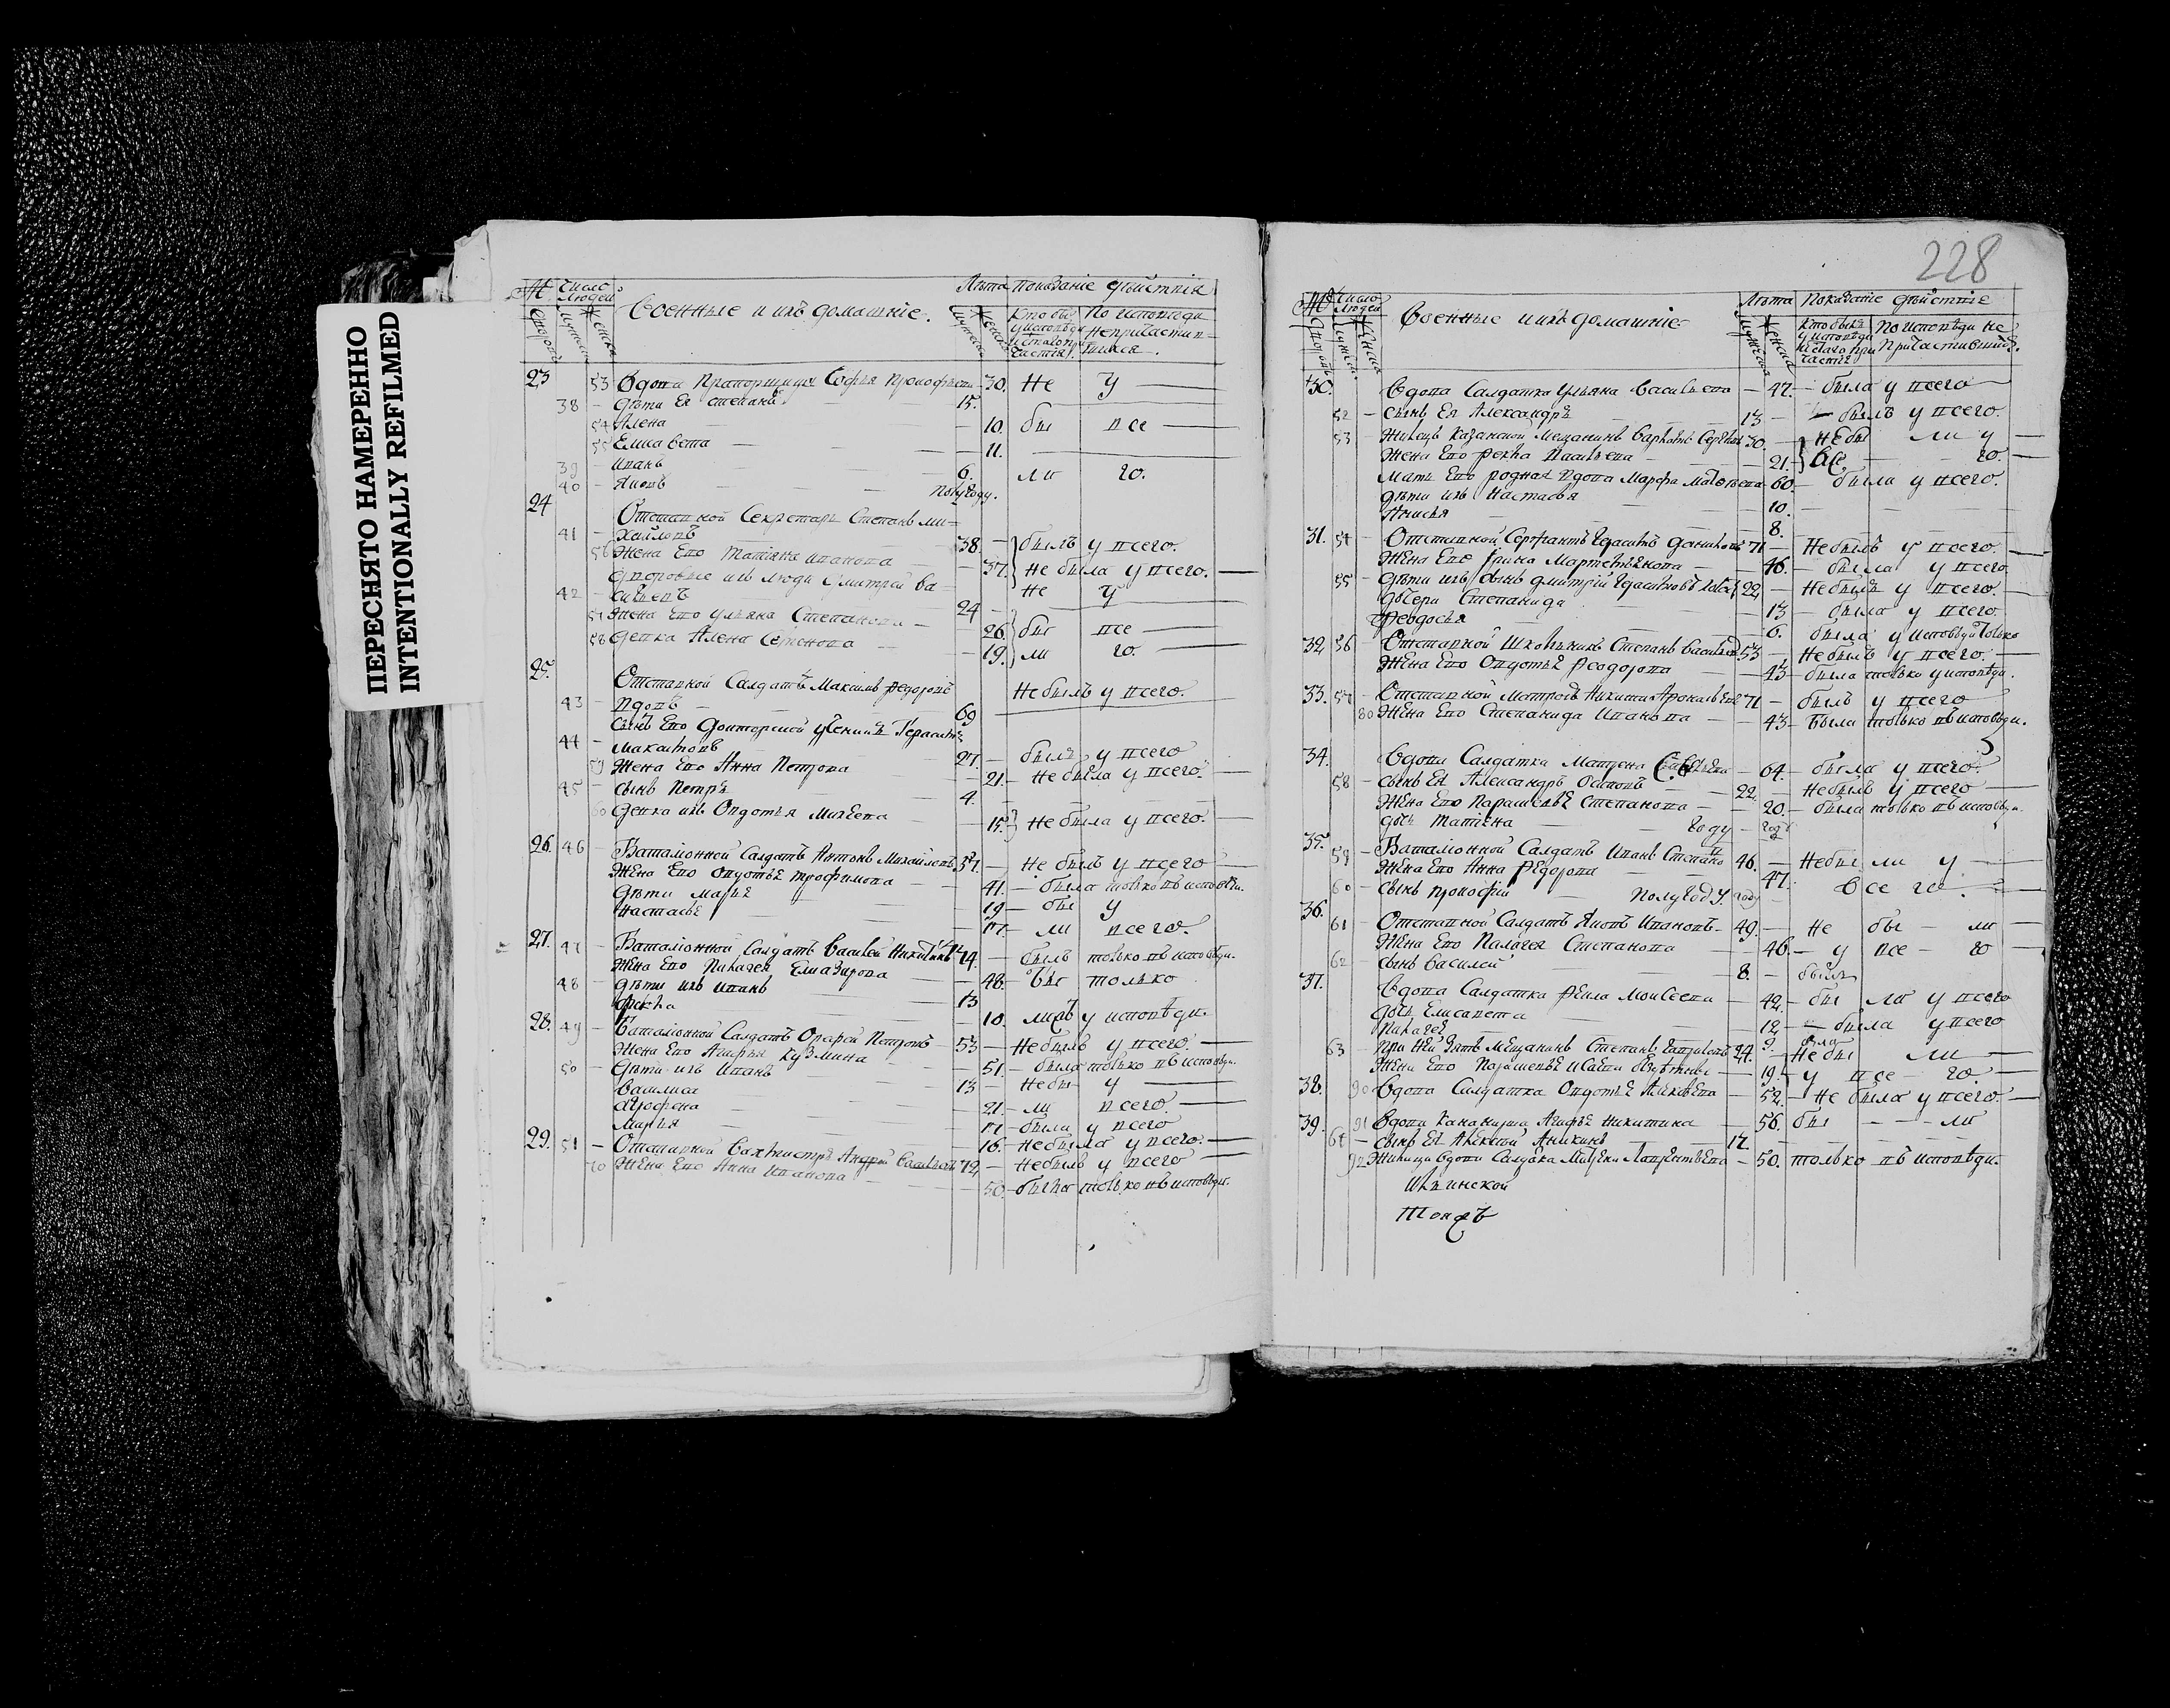 ПЕРЕСНЯТО НАМЕРЕННО
INTENTIONALLY REFILMED
228
№ Число Людей Военные и ихъ домашніе. Лѣта Показаніе дѣйствія
Кто былъ у исповѣди и святаго причастія По исповѣди непричастившихся.
23 53 Вдова Прапорщица Софья Прокофьева 30. Не у
38 – дѣти Ея Степанъ 15.
54 Алена 10. бы все
55 Елисавета 11.
39 – Иванъ 6. ли го.
40 – Яковъ полугоду.
24 Отставной Секретарь Степанъ Ми=
41 – хайловъ 38. – былъ у всего.
56 Жена Его Татіяна Иванова 37. Не была у всего.
дворовые ихъ люди Дмитрей Ва=
42 – сильевъ 24 – Не у
57 Жена Его Ульяна Степанова – 26. бы все
58 девка Алена Семенова – 19. ли го.
25. Отставной Салдатъ Максимъ Федоровъ
43 – вдовъ 69 Не былъ у всего.
сынъ Его Герасимъ
44 – Максимовъ 27. – былъ у всего
59 Жена Его Анна Петрова 21. – Не была у всего.
45 – сынъ Петръ 4.
60 девка ихъ Овдотья Михеева 15. Не была у всего.
26. 46 – Баталіонной Салдатъ Антонъ Михайловъ 57. – Не былъ у всего
Жена Его Овдотья Трофимова 41. – была только въ исповѣди.
дѣти Марья 19 – бы у
Настасья 17. – ли всего.
27. 47 – Баталіонной Салдатъ Василей Никитинъ – былъ только въ исповѣди.
Жена Его Пелагея Елизарова 48. – бы только
48 – дѣти ихъ Иванъ 13
Фекла 10. ли у исповѣди.
28. 49 – Баталіонной Салдатъ Петровъ 53 – Не былъ у всего.
Жена Его Кузмина 51. – была только въ исповѣди.
50 – дѣти ихъ Иванъ 13 – Не бы у
Василиса 21. – ли всего.
17 – была у всего
Марья 16. – не была у всего.
29. 51 – Отставной Вахмистръ Андрей Васильевъ 72. – Не былъ у всего
70 Жена Его Анна Иванова 50. – была только въ исповѣди.
№ Число Людей Военные и ихъ домашніе Лѣта Показаніе дѣйствіе
Кто былъ у исповѣди и святаго причастія По исповѣди не причастившихся.
30. Вдова Салдатка Ульяна Васильева – 47. – была у всего
52 – сынъ Ея Александръ 13 – былъ у всего.
53 – Жилецъ Казанской Мещанинъ 30. – Не бы ли у
Жена Его Фекла Васильева 21. все го.
Мать Его родная вдова Марфа Матвѣева 60. – была у всего.
дѣти ихъ Настасья 10.
Анисья 8.
31. 54 – Отставной Сержантъ Герасимъ 71 – Не былъ у всего.
Жена Его Ирина Мартемьянова 46. – была у всего
55 – дѣти ихъ сынъ Дмитрій Герасимовъ 22. – Не былъ у всего.
дочери Степанида 13 – была у всего
Феодосья 6. была у исповѣди только
32 56 – Отставной Школьникъ Степанъ Васильевъ 53 – Не былъ у всего.
Жена Его Овдотья Феодорова 43 – была только у исповѣди.
33. 57 – Отставной Матросъ Никита 71 – былъ у всего
80 Жена Его Степанида Иванова 43 – Была только въ исповѣди.
34. Вдова Салдатка Матрена – 64. – была у всего.
58 – сынъ Ея Александръ Осиповъ 22. – Не былъ у всего
Жена Его Парасковья Степанова – 20. – была только въ исповѣди.
дочь Татіяна году –
35. 59 – Баталіонной Салдатъ Иванъ Степановъ 46. – Не бы ли у
Жена Его Анна Федорова 47. все го.
60 – сынъ Прокофій полугоду
36. 61 – Отставной Салдатъ Яковъ Ивановъ – 49. – Не бы – ли
Жена Его Палагея Степанова 46. – у все – го
62 – сынъ Василей 8. – былъ
37. Вдова Салдатка Фекла Моисеева 42. – бы ли у всего
дочь Елисавета 12 – была у всего
Пелагея 9.
63 – при ней зять Мещанинъ Степанъ 24. – Не бы ли
Жена Его Парасковья 19. – у все – го.
38. 90 Вдова Салдатка Овдотья Яковлева – 52. – Не была у всего.
39. 91 Вдова Никитина 56. бы – ли
64 – сынъ Ея Алексей Аникинъ 17.
92 Жилица вдова Салдатка Лаврентьева – 50. только въ исповѣди.